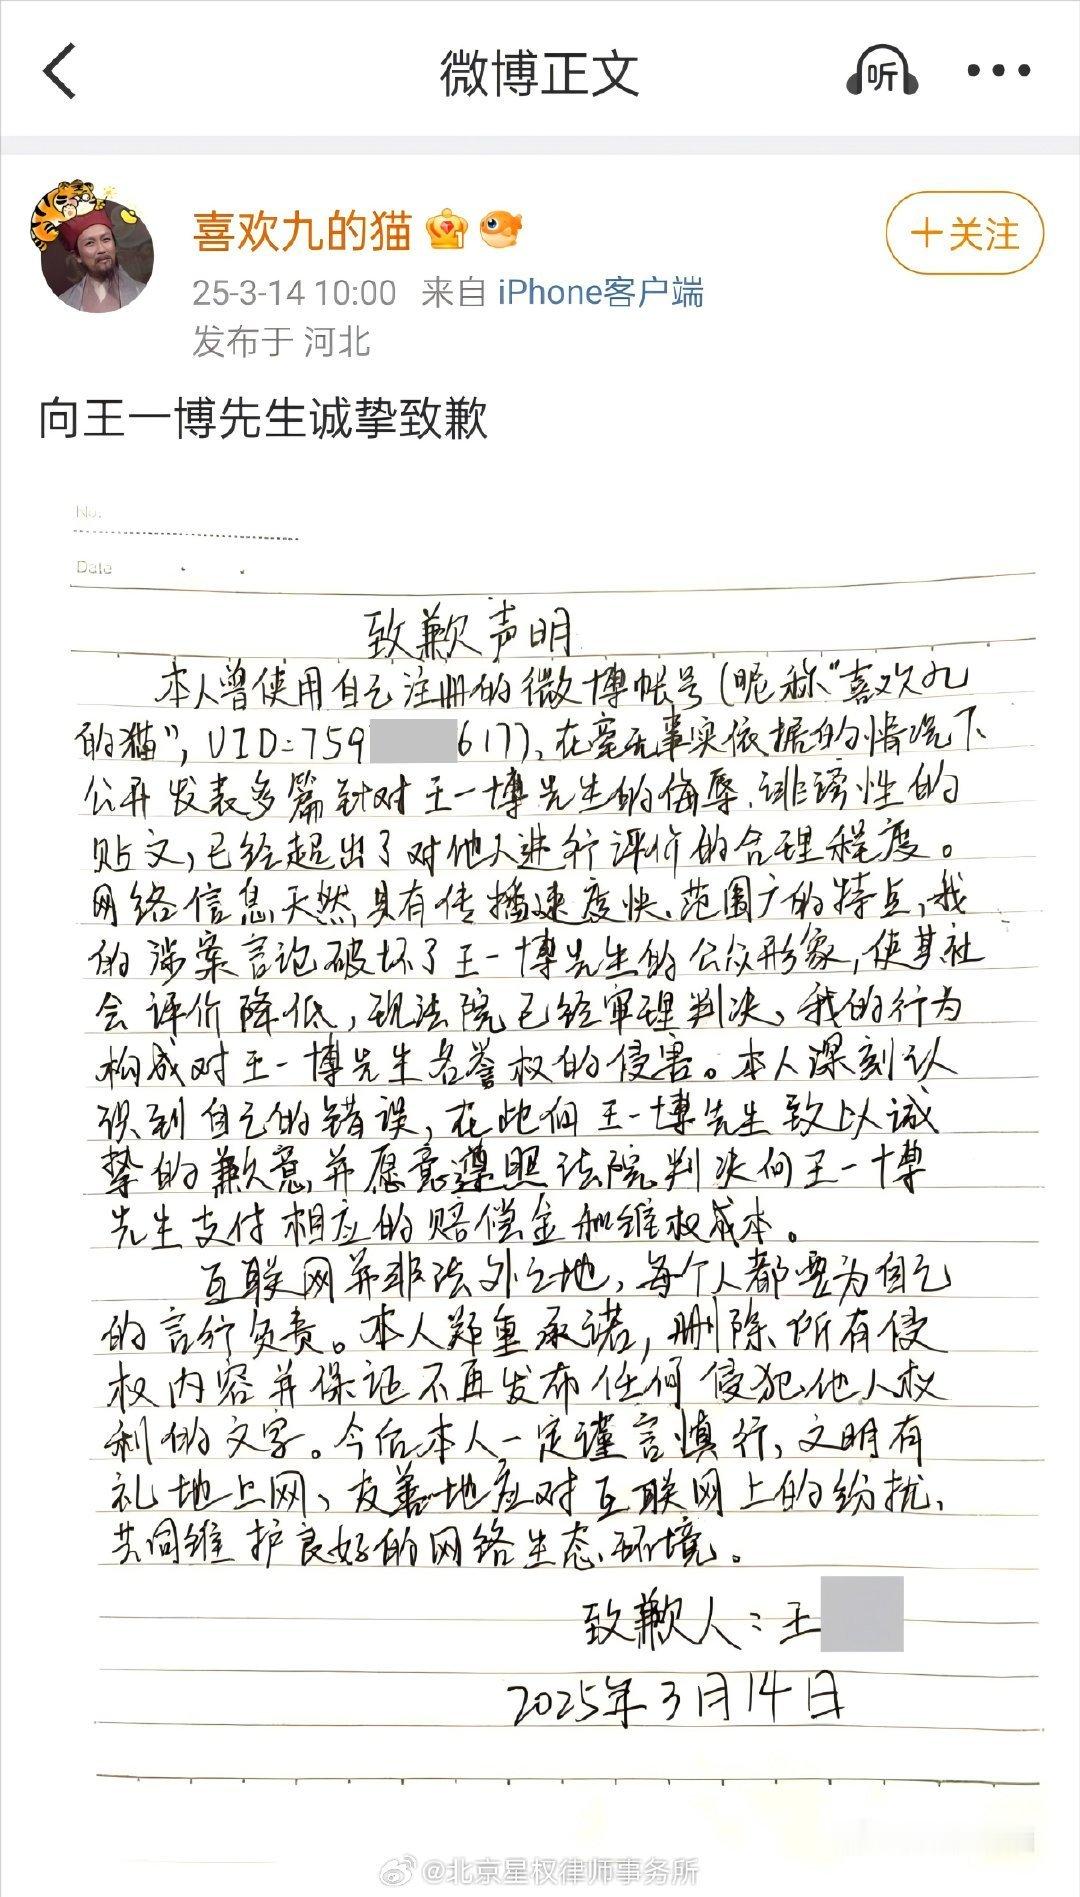 微博正文
听
喜欢九的猫
+关注
25-3-14 10:00 来自 iPhone客户端
发布于 河北
向王一博先生诚挚致歉
No.
Date
致歉声明
本人曾使用自己注册的微博帐号(昵称“喜欢九
的猫”,UID:759 617),在毫无事实依据的情况下
公开发表多篇针对王一博先生的侮辱、诽谤性的
贴文,已经超出了对他人进行评价的合理程度。
网络信息天然具有传播速度快、范围广的特点,我
的涉案言论破坏了王一博先生的公众形象,使其社
会评价降低,现法院已经审理判决,我的行为
构成对王一博先生名誉权的侵害。本人深刻认
识到自己的错误,在此向王一博先生致以诚
挚的歉意,并愿意遵照法院判决向王一博
先生支付相应的赔偿金和维权成本。
互联网并非法外之地,每个人都要为自己
的言行负责。本人郑重承诺,删除所有侵
权内容并保证不再发布任何侵犯他人权
利的文字。今后本人一定谨言慎行,文明有
礼地上网,友善地应对互联网上的纷扰,
共同维护良好的网络生态环境。
致歉人:王
2025年3月14日
@北京星权律师事务所